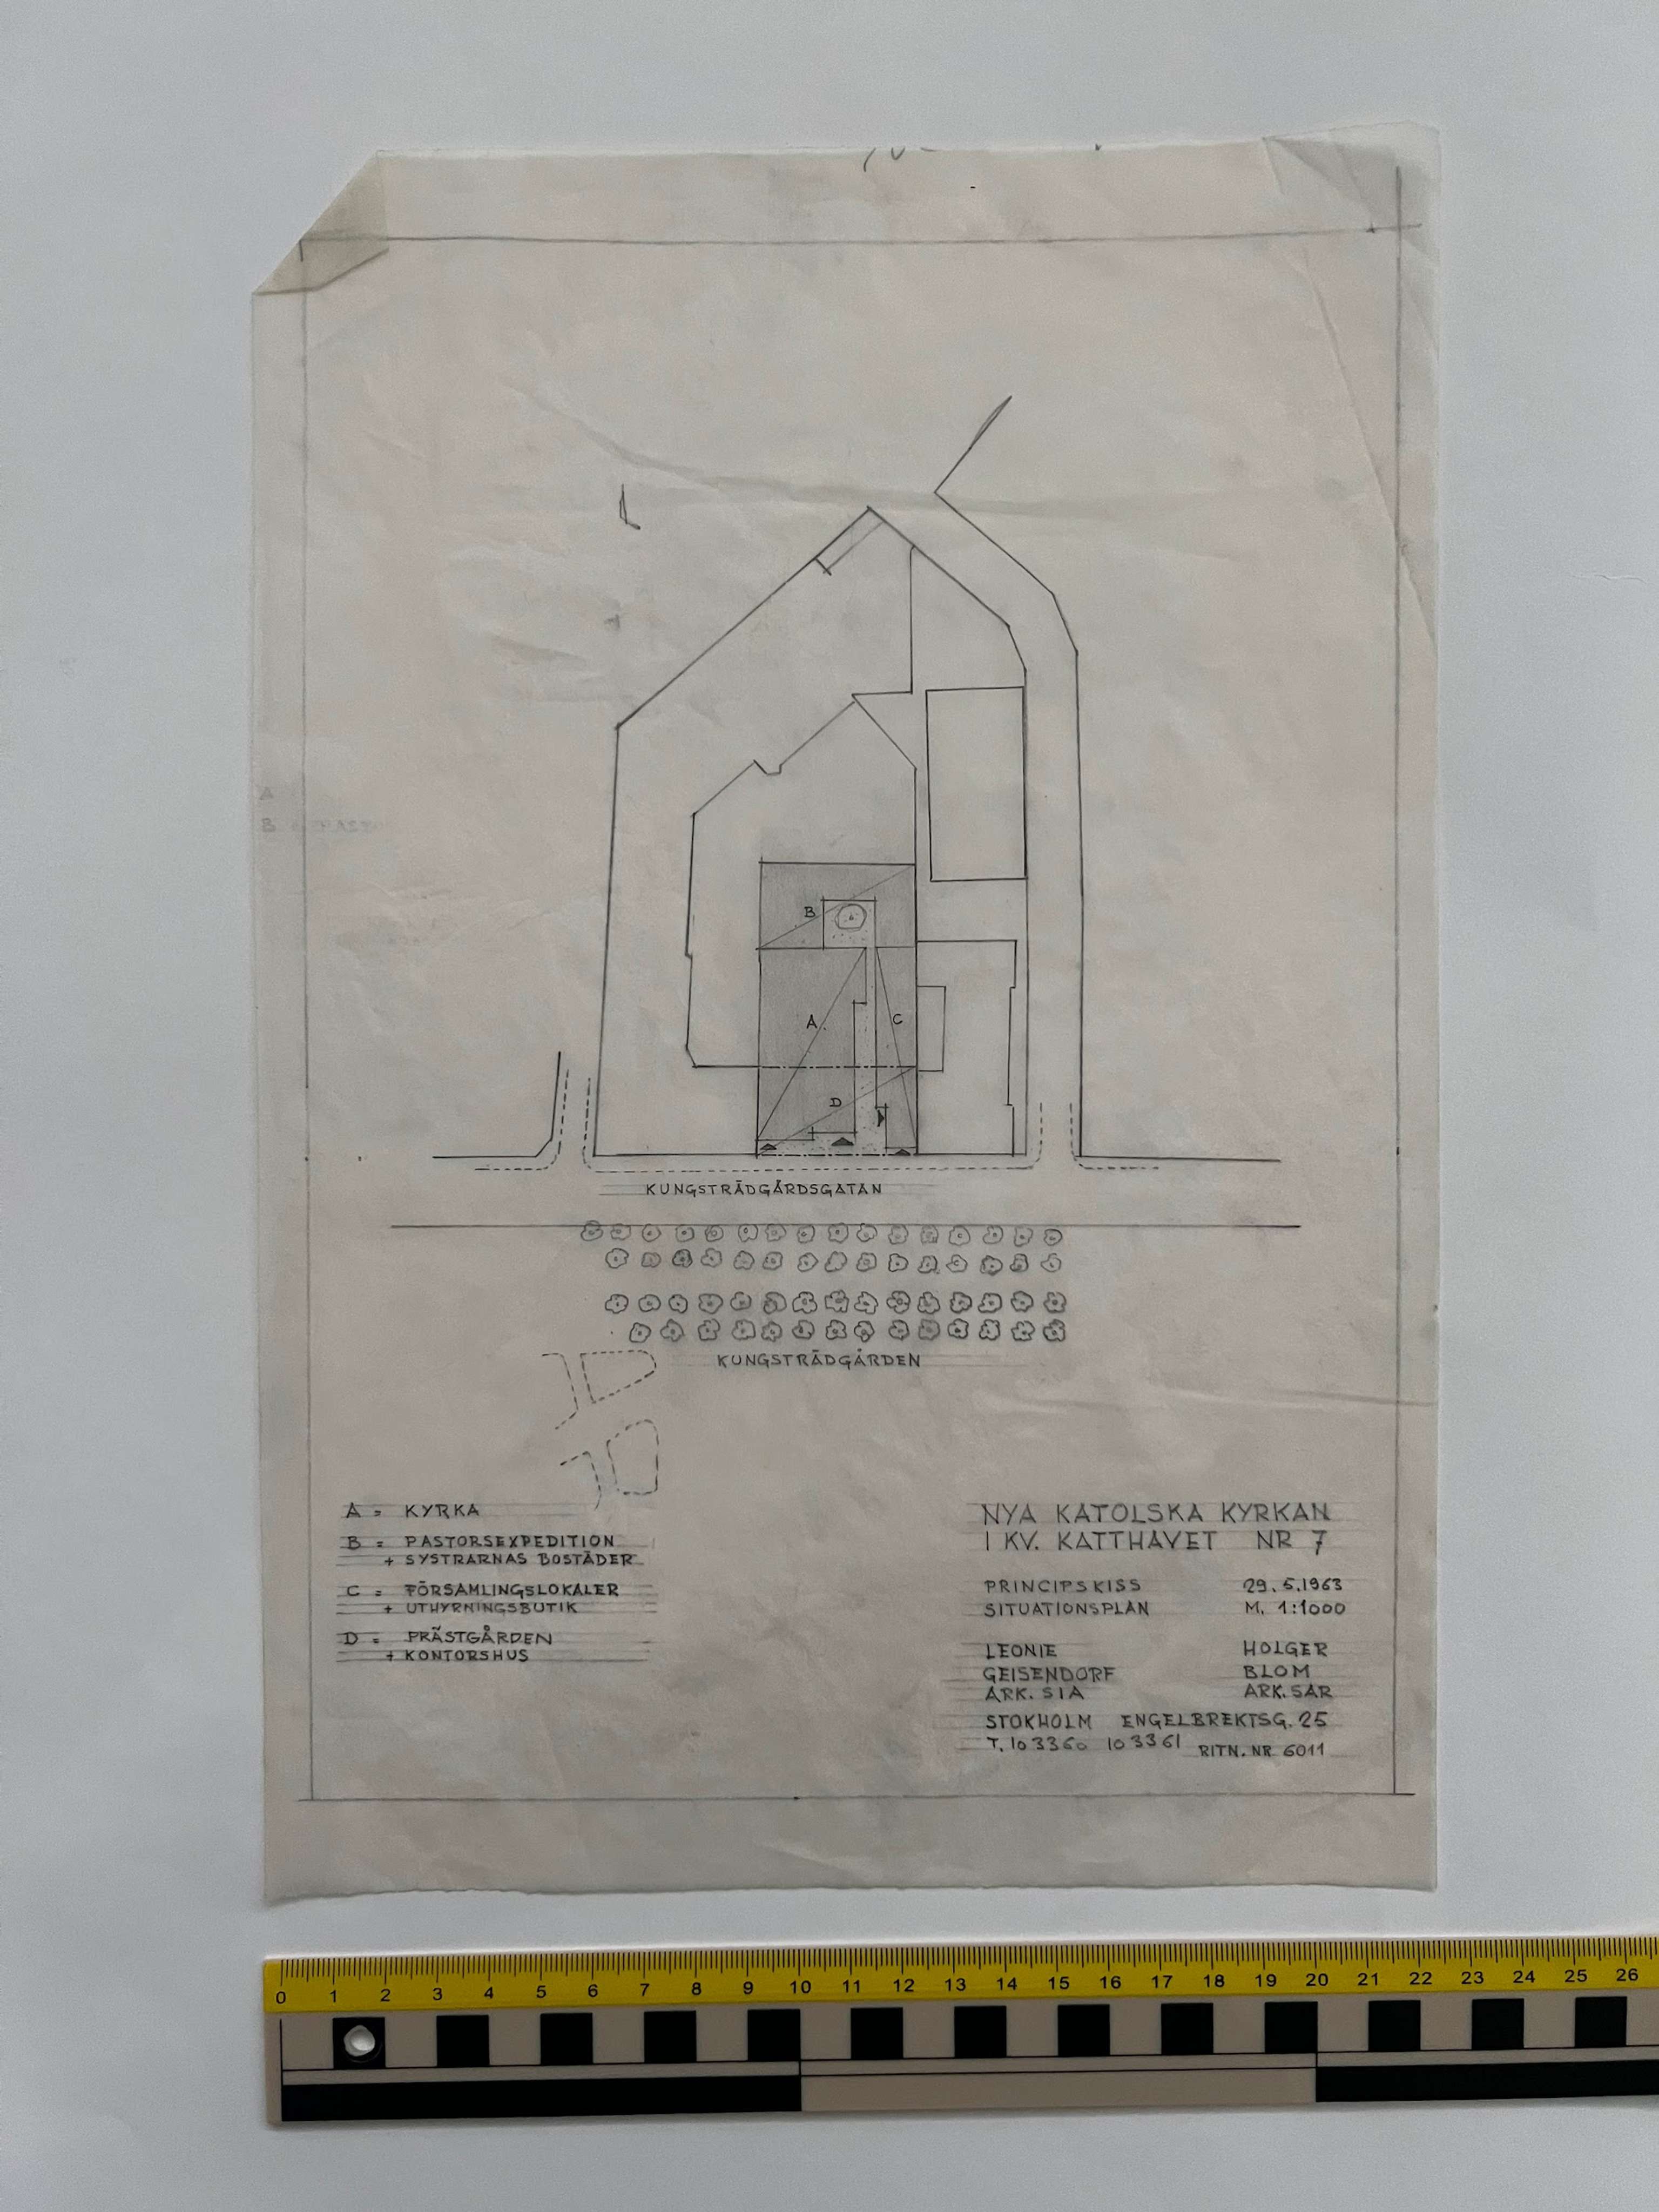 B
A
C
D
KUNGSTRÄDGÅRDSGATAN
KUNGSTRÄDGÅRDEN
A = KYRKA
B = PASTORSEXPEDITION
+ SYSTRARNAS BOSTÄDER
C = FÖRSAMLINGSLOKALER
+ UTHYRNINGSBUTIK
D = PRÄSTGÅRDEN
+ KONTORSHUS
NYA KATOLSKA KYRKAN
I KV. KATTHAVET NR 7
PRINCIPSKISS 29.5.1963
SITUATIONSPLAN M. 1:1000
LEONIE HOLGER
GEISENDORF BLOM
ARK. SIA ARK. SAR
STOKHOLM ENGELBREKTSG. 25
T. 103360 103361 RITN. NR 6011
0 1 2 3 4 5 6 7 8 9 10 11 12 13 14 15 16 17 18 19 20 21 22 23 24 25 26